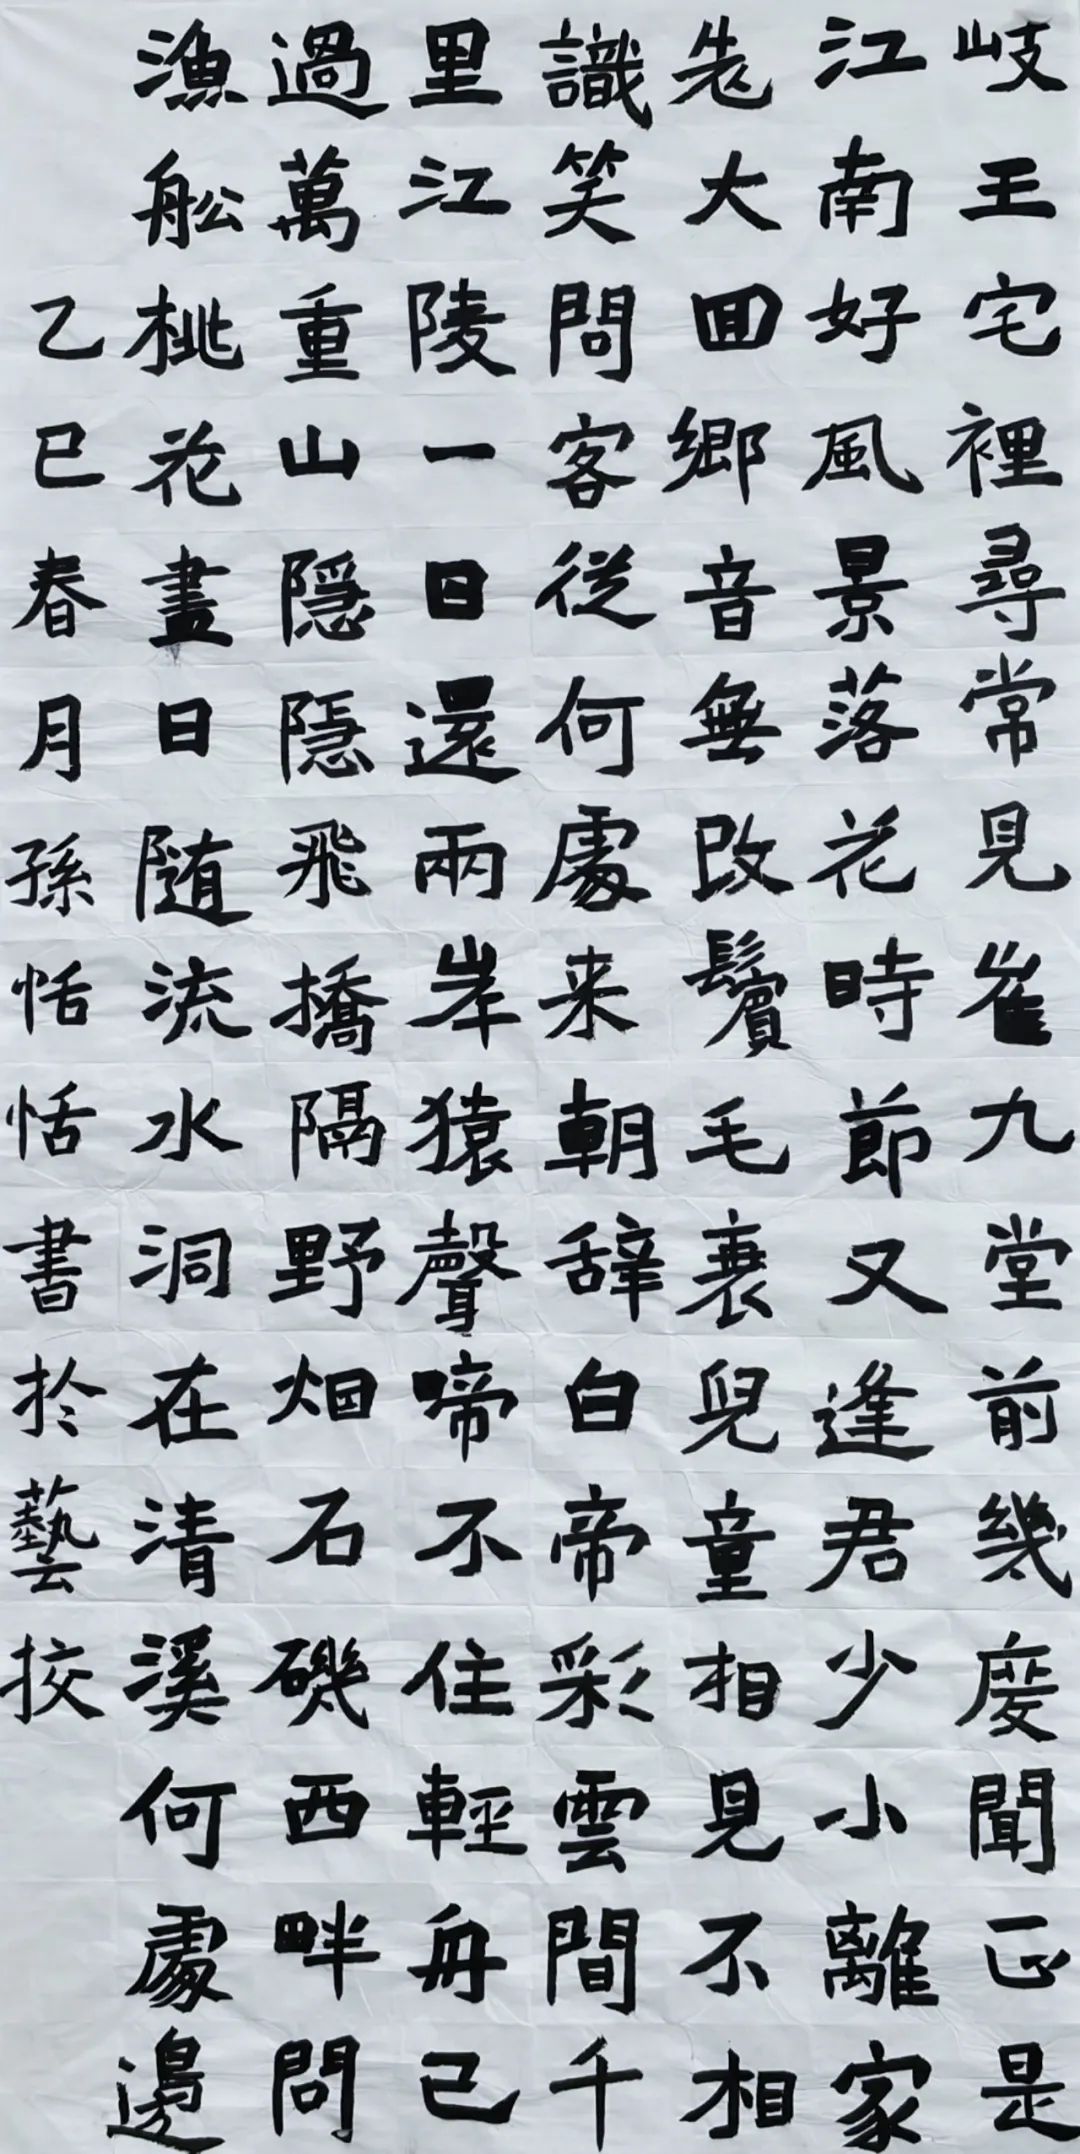 岐王宅裡尋常見崔九堂前幾度聞正是
江南好風景落花時節又逢君少小離家
老大囬鄉音無改鬢毛衰兒童相見不相
識笑問客從何處来朝辞白帝彩雲間千
里江陵一日還兩岸猿聲啼不住輕舟已
過萬重山隱隱飛橋隔野烟石磯西畔問
漁舩桃花盡日随流水洞在清溪何處邊
乙巳春月孫恬恬書於藝校